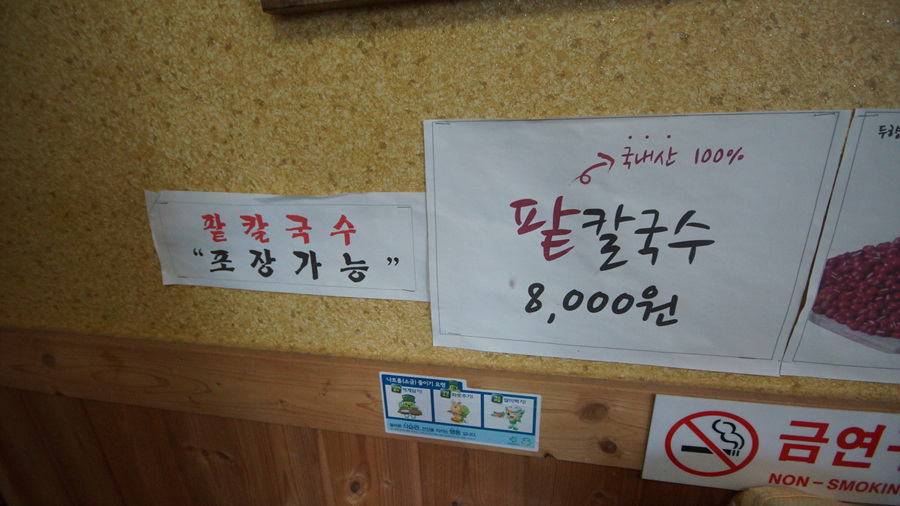 팥칼국수
“포장가능”
국내산 100%
팥칼국수
8,000원
나트륨(소금) 줄이기 요령
금연
NON-SMOKIN